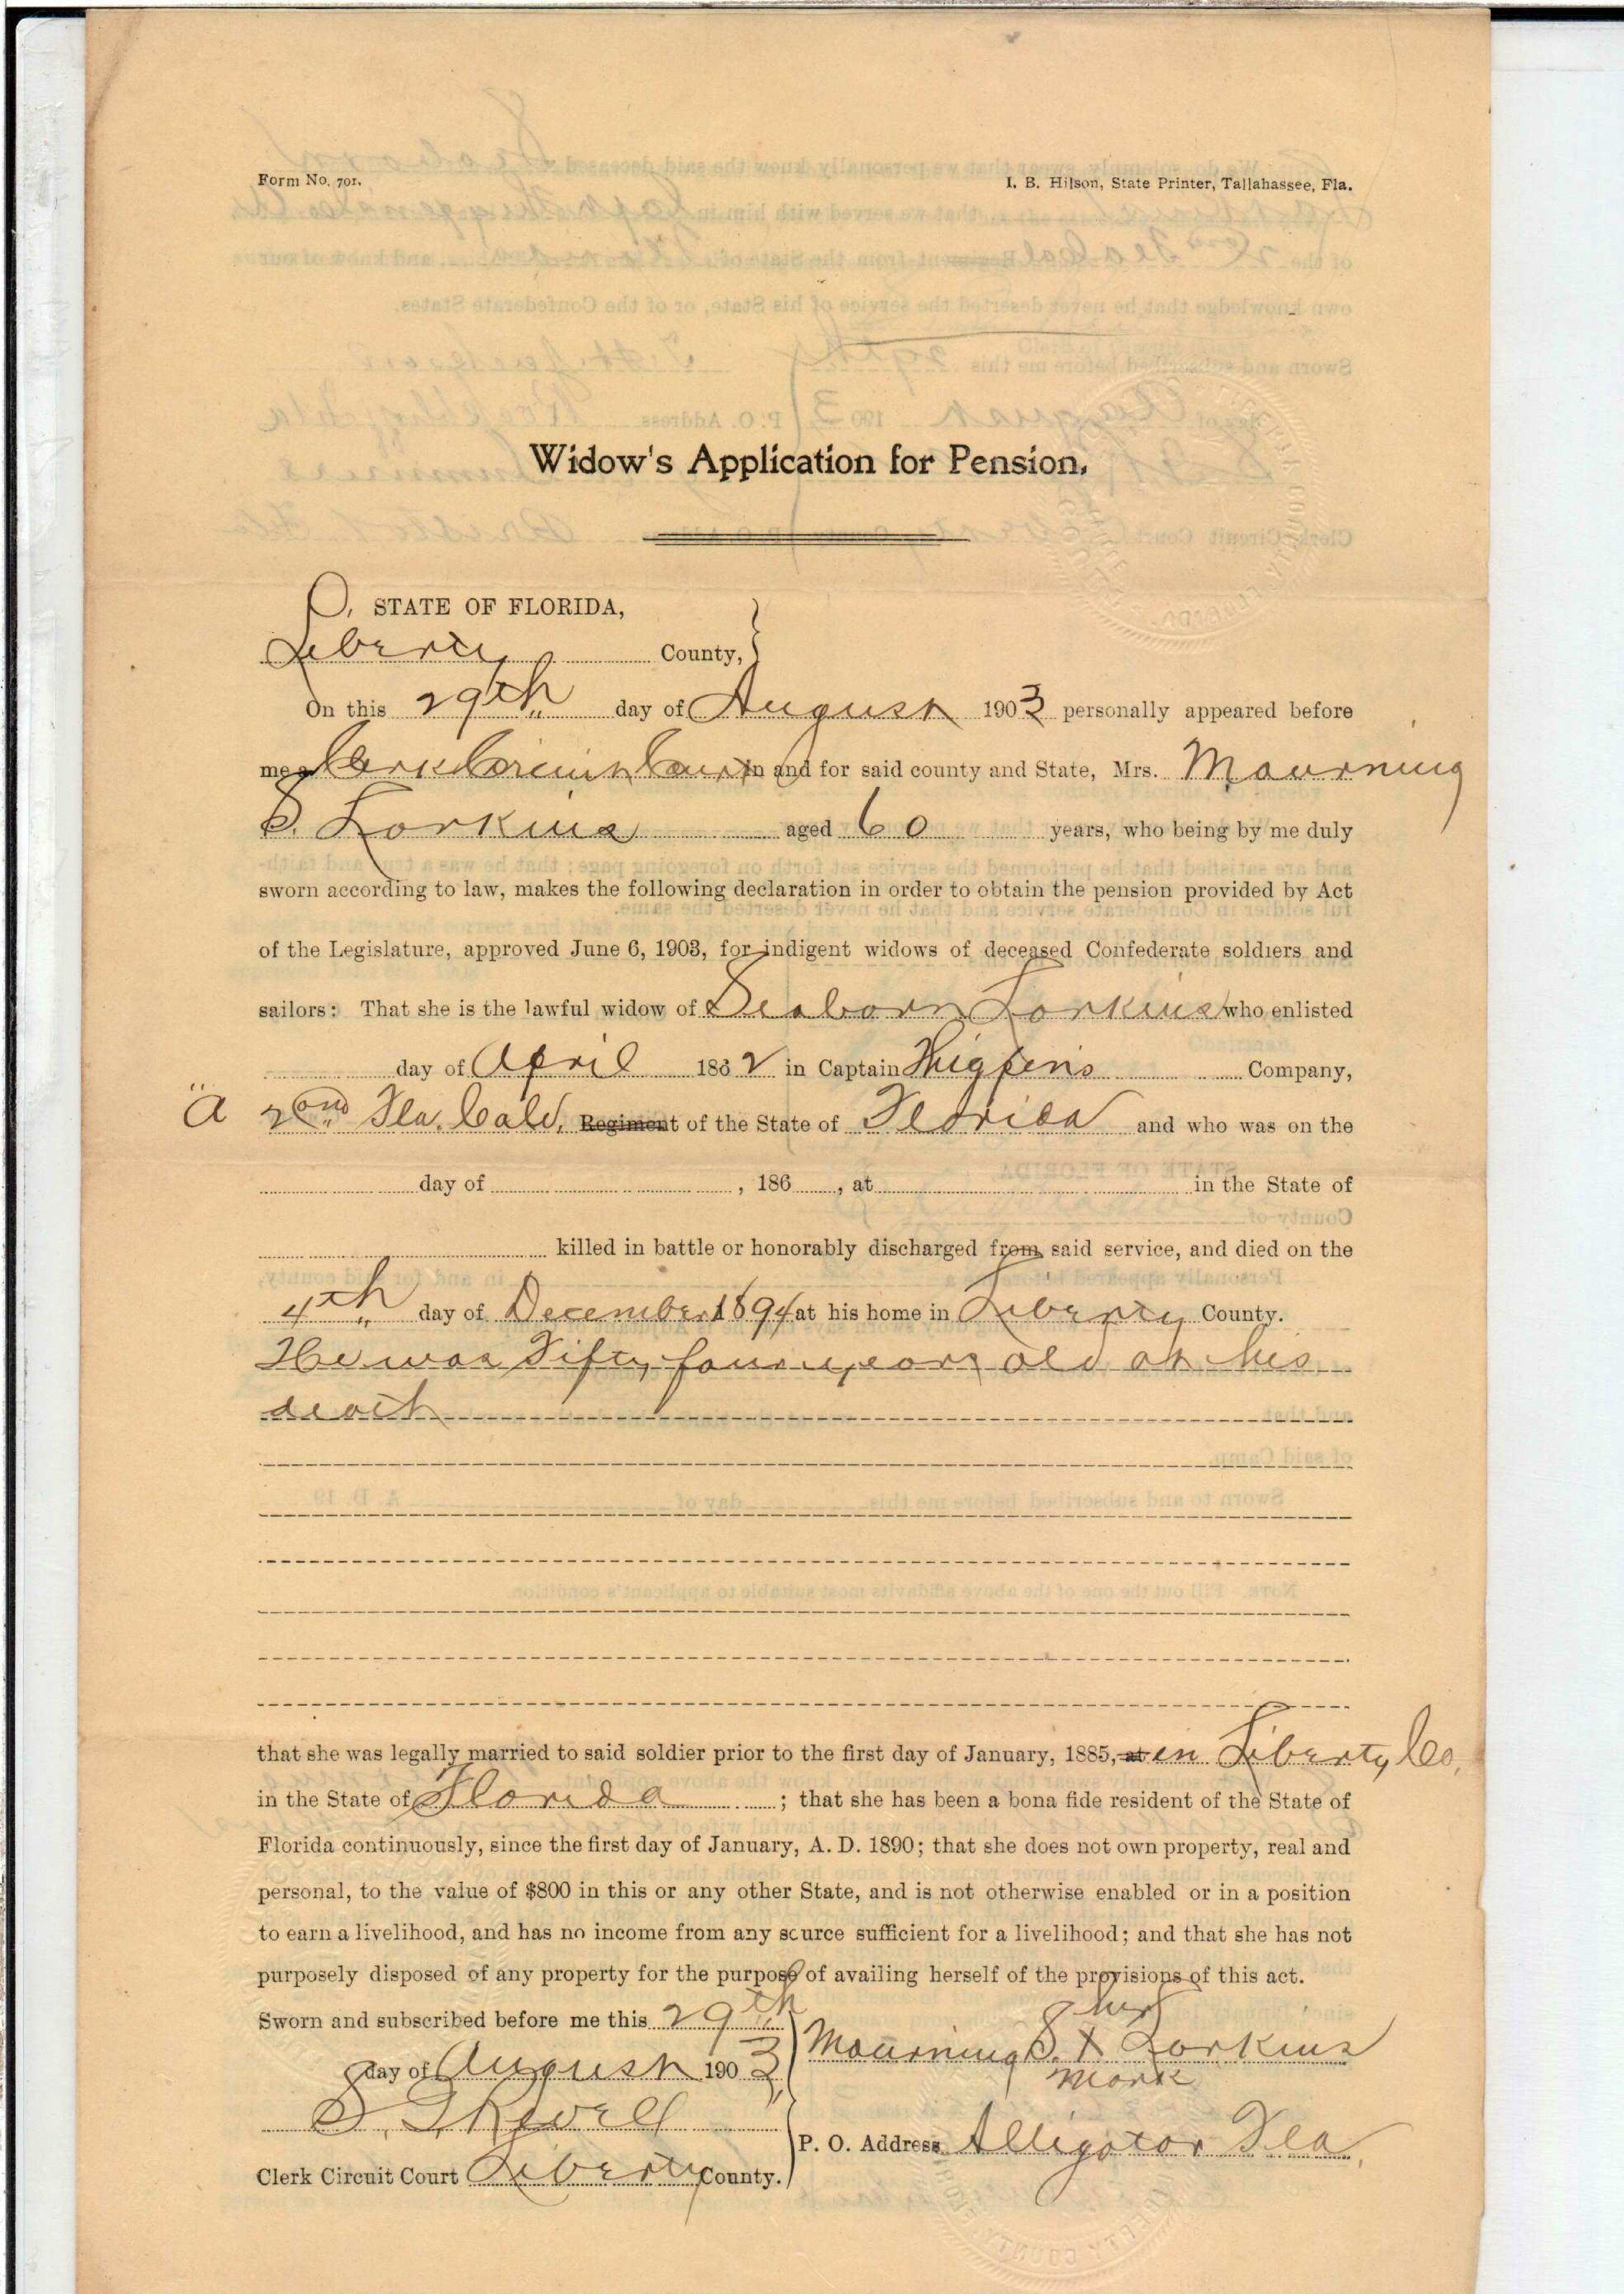 Form No. 701.
I. B. Hilson, State Printer, Tallahassee, Fla.
Widow's Application for Pension.
STATE OF FLORIDA,
Liberty County,
On this 29th day of August 1903 personally appeared before
me a Clerk Circuit Court in and for said county and State, Mrs. Mourning
S. Larkins aged 60 years, who being by me duly
sworn according to law, makes the following declaration in order to obtain the pension provided by Act
of the Legislature, approved June 6, 1903, for indigent widows of deceased Confederate soldiers and
sailors: That she is the lawful widow of Seaborn Larkins who enlisted
day of April 1862 in Captain Thigpens Company,
"a" 2nd Fla. Calv. Regiment of the State of Florida and who was on the
day of , 186 , at in the State of
killed in battle or honorably discharged from said service, and died on the
4th day of December 1894 at his home in Liberty County.
He was Fifty four years old at his
death
that she was legally married to said soldier prior to the first day of January, 1885, at in Liberty Co.
in the State of Florida ; that she has been a bona fide resident of the State of
Florida continuously, since the first day of January, A. D. 1890; that she does not own property, real and
personal, to the value of $800 in this or any other State, and is not otherwise enabled or in a position
to earn a livelihood, and has no income from any source sufficient for a livelihood; and that she has not
purposely disposed of any property for the purpose of availing herself of the provisions of this act.
Sworn and subscribed before me this 29th
day of August 1903
her
Mourning S. X Larkins
mark
S. Revell
P. O. Address Alligator Fla.
Clerk Circuit Court Liberty County.